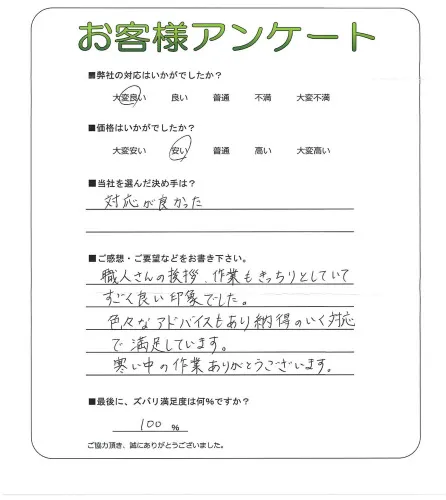 お客様アンケート
■弊社の対応はいかがでしたか？
大変良い 良い 普通 不満 大変不満
■価格はいかがでしたか？
大変安い 安い 普通 高い 大変高い
■当社を選んだ決め手は？
対応が良かった
■ご感想・ご要望などをお書き下さい。
職人さんの挨拶、作業もきっちりとしていて
すごく良い印象でした。
色々なアドバイスもあり納得のいく対応
で満足しています。
寒い中の作業ありがとうございます。
■最後に、ズバリ満足度は何%ですか？
100 %
ご協力頂き、誠にありがとうございました。